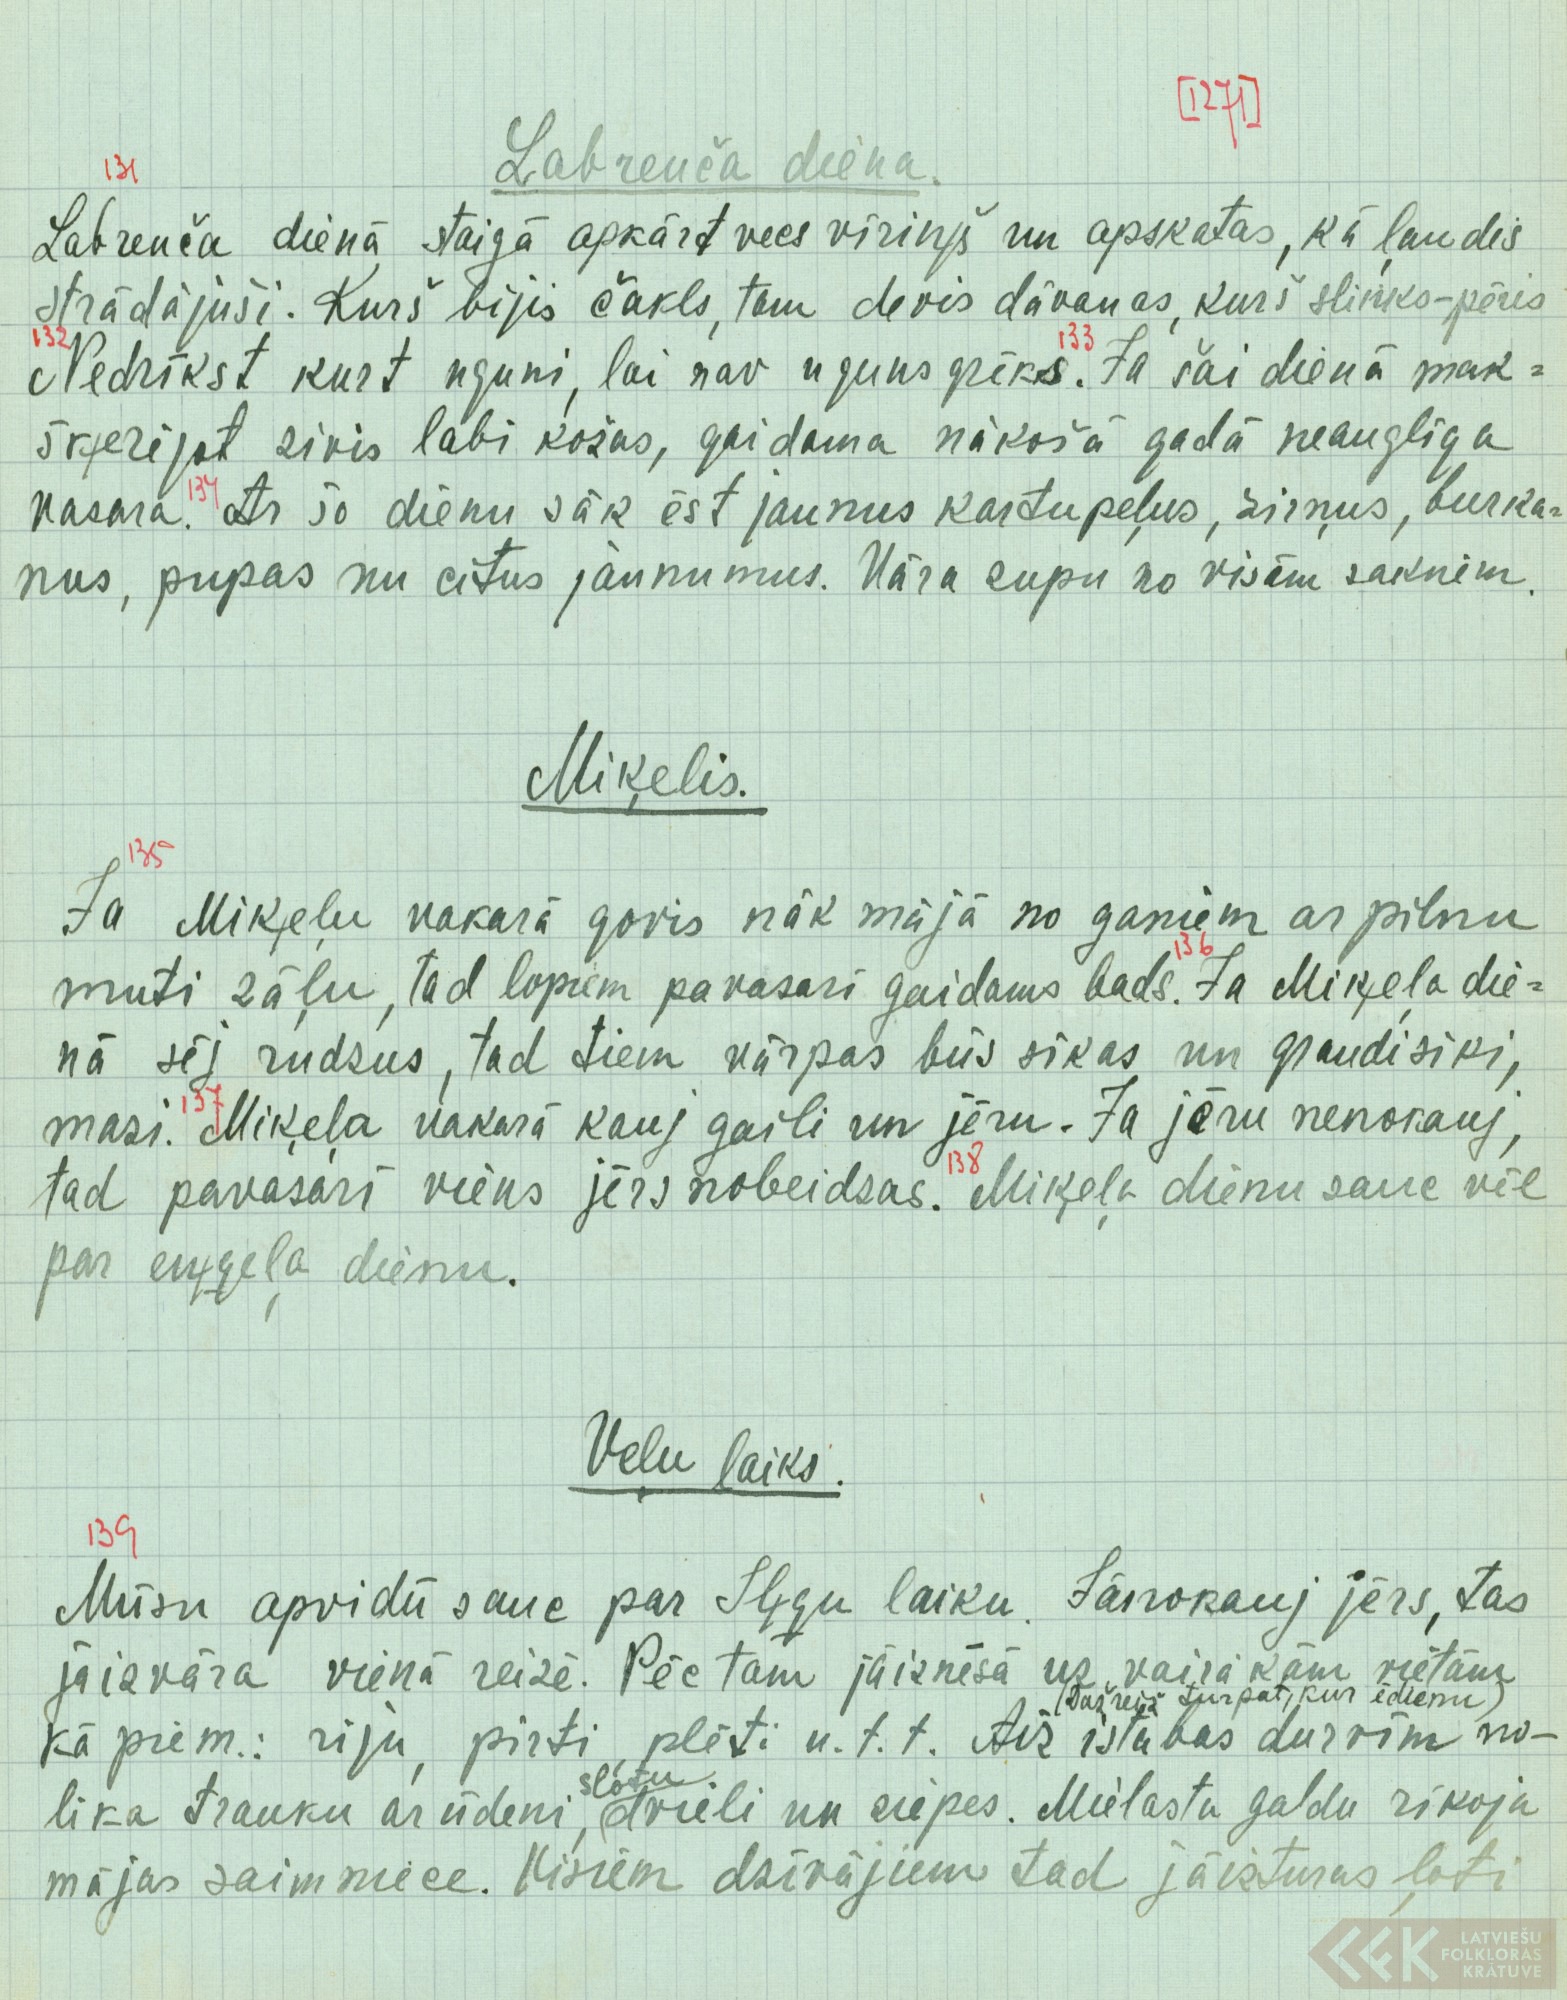 [1271]
Labrenča diena.
131
Labrenča dienā staigā apkārt vecs vīriņš un apskatas, kā ļaudis
strādājuši. Kurš bijis čakls, tam devis dāvanas, kurš slinks-pēris
132 Nedrīkst kurt uguni, lai nav uguns grēks. 133 Ja šai dienā mak=
šķerējot zivis labi kožas, gaidama nākošā gadā neauglīga
vasara. 134 Ar šo dienu sāk ēst jaunus kartupeļus, zirņus, burka=
nus, pupas un citus jaunumus. Vāra zupu no visām saknēm.
Miķelis.
135
Ja Miķeļu vakarā govis nāk mājā no ganiem ar pilnu
muti zāļu, tad lopiem pavasarī gaidams bads. 136 Ja Miķeļa die=
nā sēj rudzus, tad tiem vārpas būs sīkas un graudi sīki,
mazi. 137 Miķeļa vakarā kauj gaili un jēru. Ja jēru nenokauj,
tad pavasarī viens jērs nobeidzas. 138 Miķeļa dienu sauc vēl
par eņģeļa dienu.
Veļu laiks.
139
Mūsu apvidū sauc par Iļģu laiku. Jānokauj jērs, tas
jāizvāra vienā reizē. Pēc tam jāiznēsā uz vairākām vietām
(Dažreiz turpat, kur ēdienu)
kā piem.: riju, pirti, plēti u. t. t. Aiz istabas durvīm no-
slotu
lika trauku ar ūdeni, dvieli un ziepes. Mielasta galdu rīkoja
mājas saimniece. Visiem dzīvajiem tad jāizturas ļoti
LATVIEŠU
FOLKLORAS
KRĀTUVE